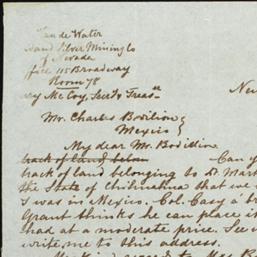 Vande Water
and Silver Mining Co
of Nevada
ffice 115 Broadway
Room 78
ey McCoy, Secr'd & Treasr
New
Mr. Charles Bodilion
Mexico
My dear Mr. Bodilion
track of land below Can y
track of land belonging to D. Mark
the State of Chihuahua that we
I was in Mexico. Col. Casy a br
Grant thinks he can place i
had at a moderate price. See
write me to this address.